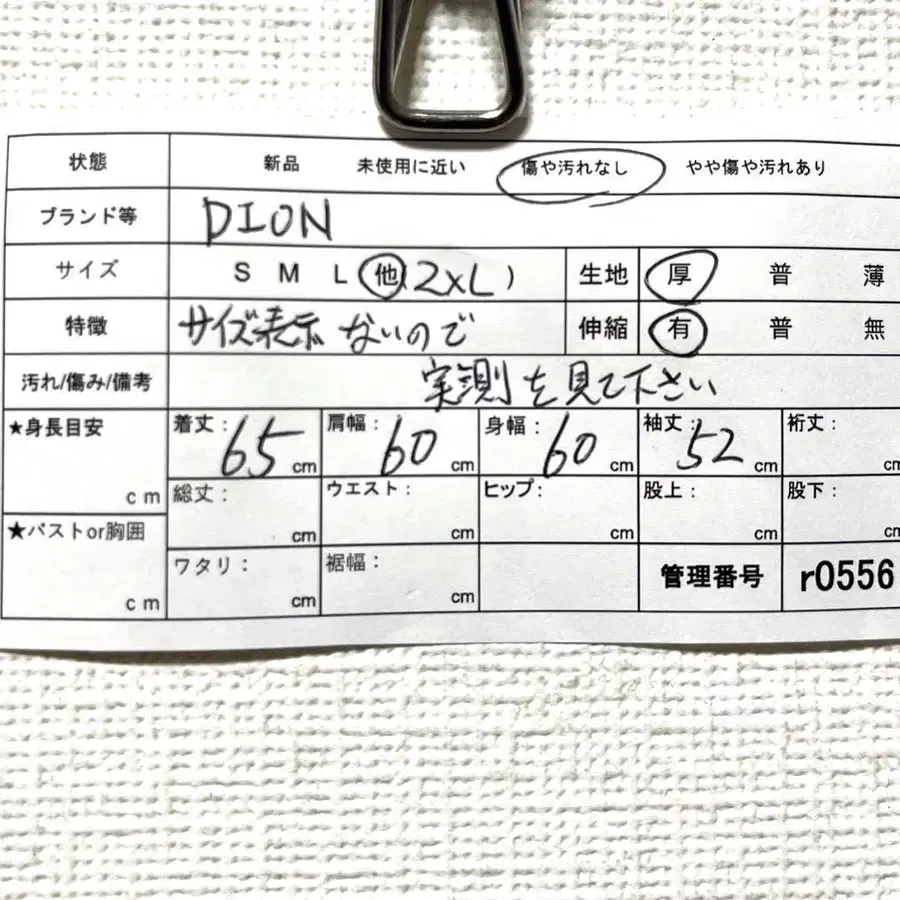 状態 新品 未使用に近い 傷や汚れなし やや傷や汚れあり
ブランド等 DION
サイズ S M L 他(2XL) 生地 厚 普 薄
特徴 サイズ表示ないので 伸縮 有 普 無
汚れ/傷み/備考 実測を見て下さい
★身長目安 cm
着丈: 65 cm 肩幅: 60 cm 身幅: 60 cm 袖丈: 52 cm 裄丈: cm
総丈: cm ウエスト: cm ヒップ: cm 股上: cm 股下: cm
★バストor胸囲 cm
ワタリ: cm 裾幅: cm 管理番号 r0556